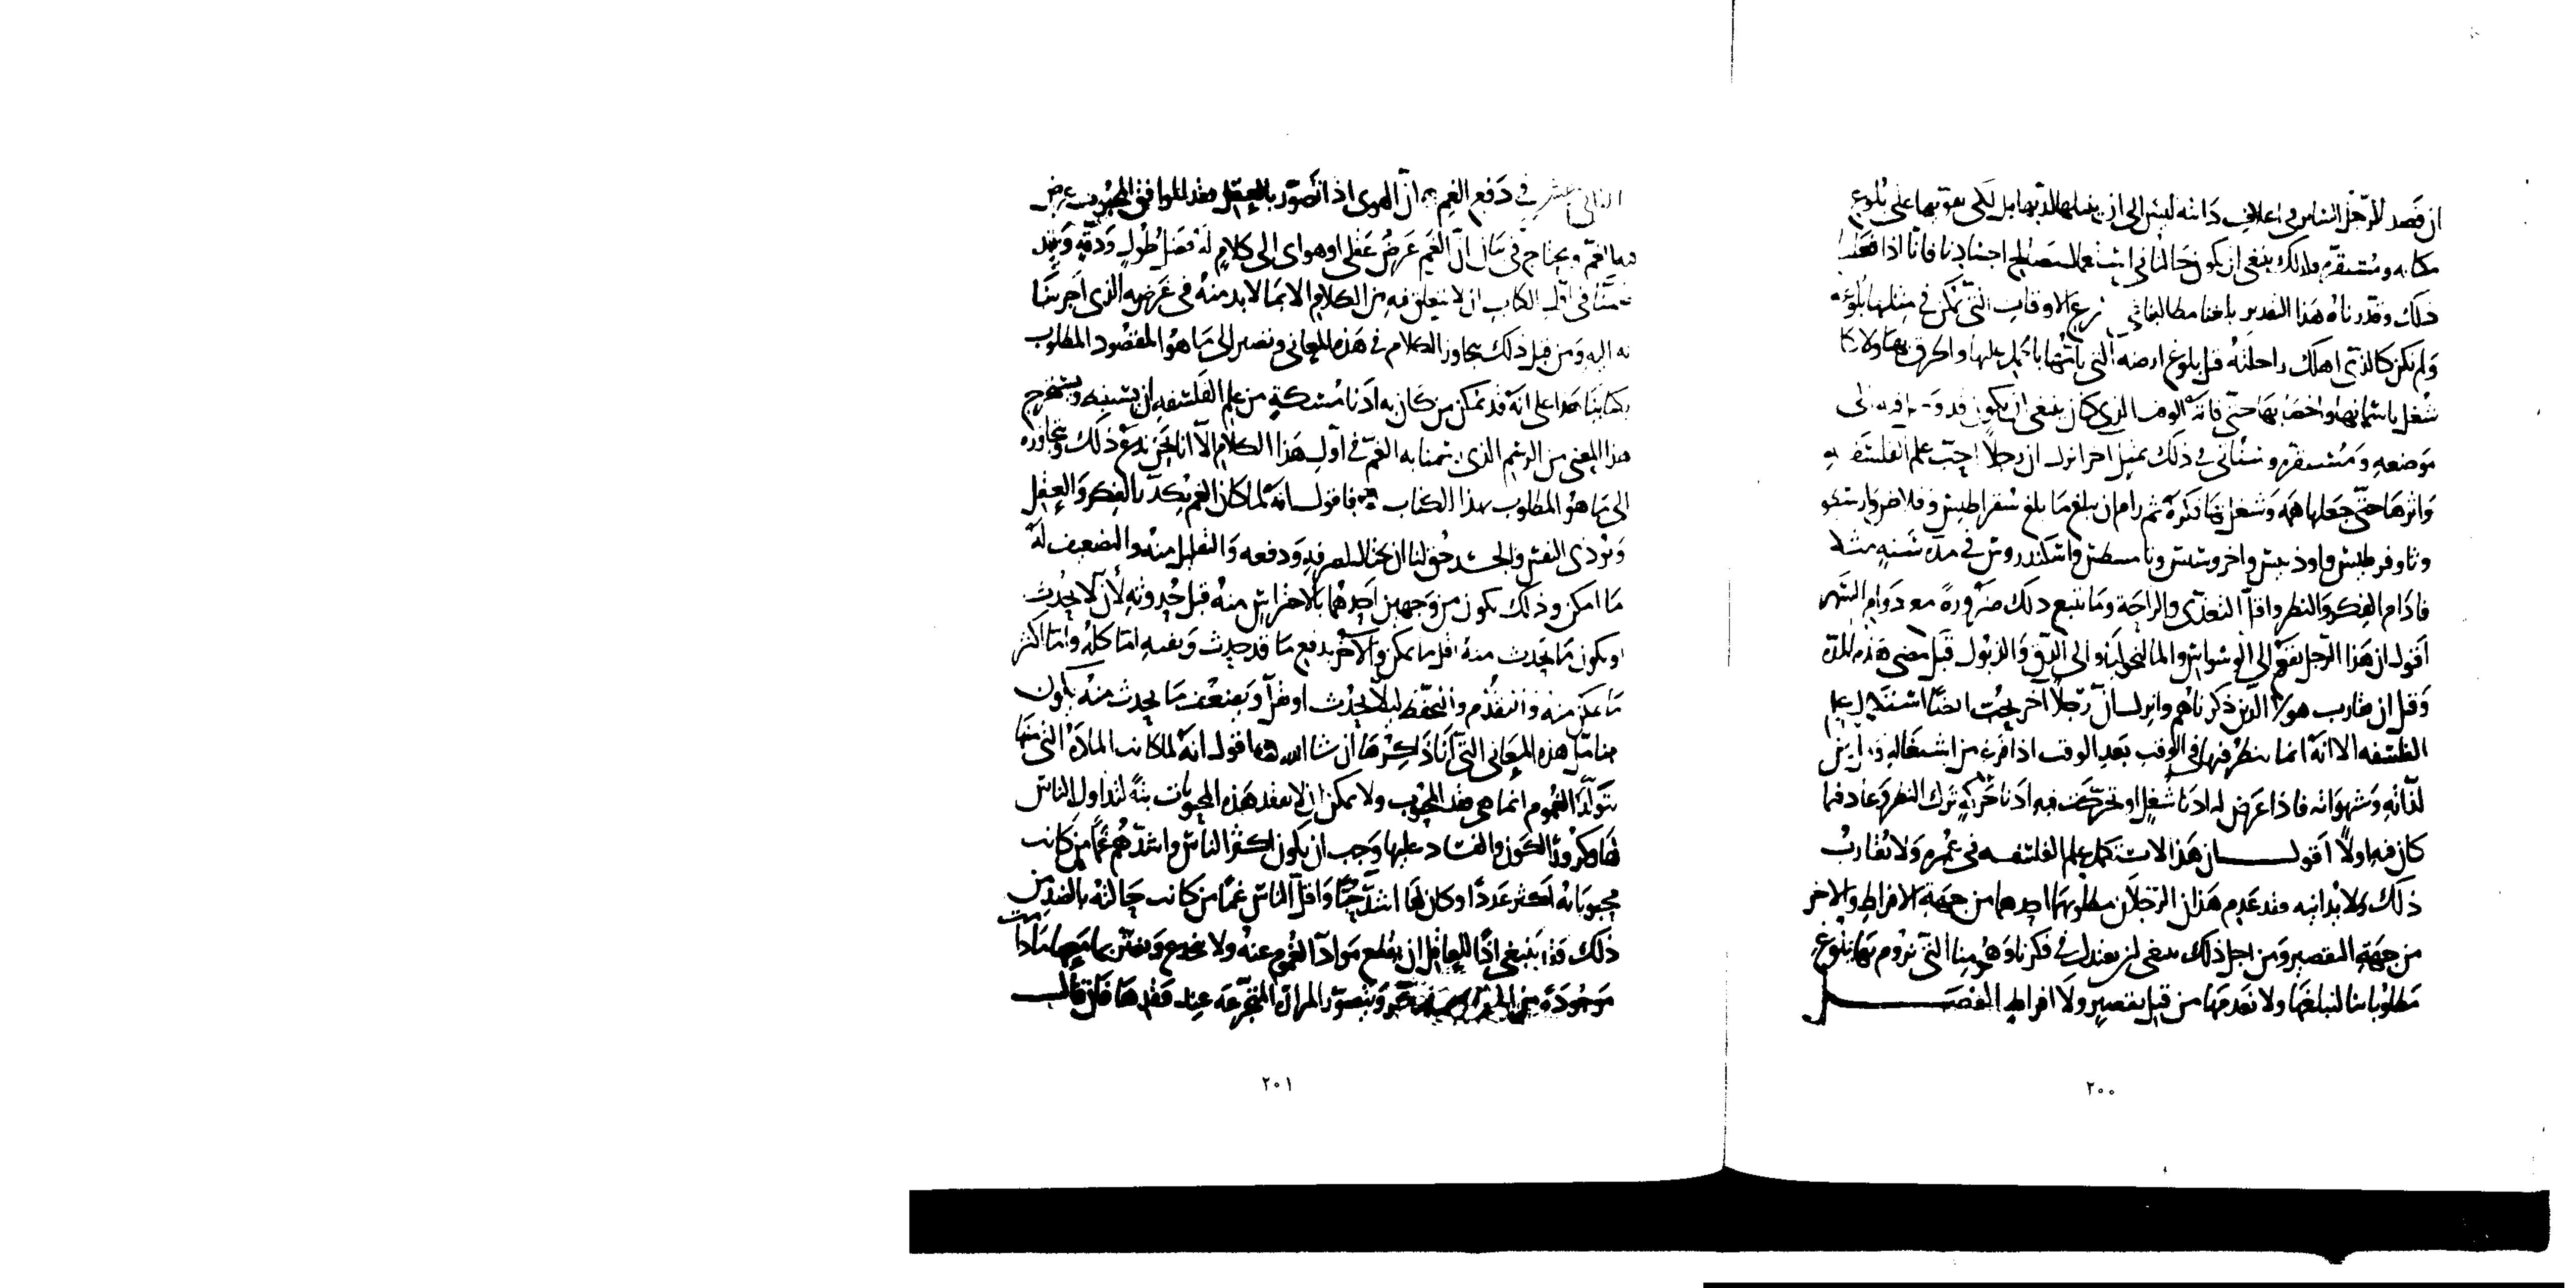 ان قصد الرجل المسافر في اعلاف دابته ليس الى ان ينيلها لذتها بل لكى يقويها على بلوغ
مكانه ومستقره فكذلك ينبغى ان يكون حالنا فى استعمال مصالح اجسادنا فانا اذا فعلنا
ذلك وقدرناه هذا التقدير بلغنا مطالبنا فى اسرع الاوقات التى يمكن فى مثلها بلوغه
ولم نكن كالذى اهلك راحلته قبل بلوغ ارضه التى يأتمها بالحمل عليها والخرق بها ولا كالذى
شغل باسمانها واخصابها حتى فاته الوقت الذى كان ينبغى ان يكون قد وافى فيه الى
موضعه ومستقره وسنأتى فى ذلك بمثل اخر انزل ان رجلا احب علم الفلسفه
واثرها حتى جعلها همه وشغل بها فكره ثم رام ان يبلغ ما بلغ سقراطيس وفلاطن وارسطو
وثاوفرسطيس واوذيمس واخروسبس وثامسطيس واسكندروس فى مدة سنة مثلا
فادام الفكر والنظر واقل التغذى والراحة وما يتبع ذلك ضرورة مع دوام السهر
اقول ان هذا الرجل يقع الى الوسواس والمالنخوليا والى الدق والذبول قبل مضى هذه المدة
وقبل ان يقارب هؤلا الذين ذكرناهم وانزل ان رجلا آخر احب ايضا استكمال علم
الفلسفه الا انه انما ينظر فيها فى الوقت بعد الوقت اذا فرغ من اشغاله ومل من
لذاته وشهواته فاذا عرض له ادنا شغل او تحركت فيه ادنا حركة ترك النظر وعاد فيما
كان فيه اولا اقول ان هذا لا يستكمل علم الفلسفه فى عمره ولا يقارب
ذلك ولا يدانيه فقد عدم هذان الرجلان مطلوبهما احدهما من جهة الافراط والاخر
من جهة التقصير ومن اجل ذلك ينبغى ان نعتدل فى فكرنا وهمومنا التى نروم بها بلوغ
مطلوباتنا لنبلغها ولا نعدمها من قبل تقصير ولا افراط الفصل
٢٠٠
الثانى عشر فى دفع الغم ان الهوى اذا تصور بالعقل فقد الموافق المحبوب عرض
فيه الغم ويحتاج فى بيان ان الغم عرض عقلى او هوائى الى كلام له فضل طول ودقة وقد
ضمنا فى اول الكتاب ان لا نتعلق فيه من الكلام الا بما لا بد منه فى غرضه الذى اجرينا
به اليه ومن قبل ذلك نتجاوز الكلام فى هذه المعانى ونصير الى ما هو المقصود المطلوب
بكتابنا هذا على انه قد يمكن من كان به ادنا مسكة من علم الفلسفه ان يستنبط ويستخرج
هذا المعنى من الرسم الذى رسمنا به الغم فى اول هذا الكلام الا انا نحن ندع ذلك ونتجاوزه
الى ما هو المطلوب بهذا الكتاب فاقول انه لما كان الغم يكدر الفكر والعقل
ويؤذى النفس والجسد حق لنا ان نحتال لصرفه ودفعه والتقليل منه والتضعيف له
ما امكن وذلك يكون من وجهين احدهما بالاحتراس منه قبل حدوثه لأن لا يحدث
او يكون ما يحدث منه اقل ما يمكن والآخر بدفع ما قد حدث ونفيه اما كله واما اكثر
ما يمكن منه والتقدم والتحفظ ليلا يحدث او يقل ويضعف ما يحدث منه يكون
بتأمل هذه المعانى التى انا ذاكرها ان شا الله اقول انه لما كانت المادة التى منها
تتولد الغموم انما هى فقد المحبوب ولا يمكن ان لا يفقد هذه المحبوبات بتة لتداول الناس
لها وكرور الكون والفساد عليها وجب ان يكون اكثر الناس واشدهم غما من كانت
محبوباته اكثر عددا وكان لها اشد حبا واقل الناس غما من كانت حالته بالضد من
ذلك فقد ينبغى اذا للعاقل ان يقطع مواد الغموم عنه ولا يخدع ويغتر بما معها ما دامت
موجودة من ويتصور المرارة المتجرعه عند فقدها فان قال
٢٠١